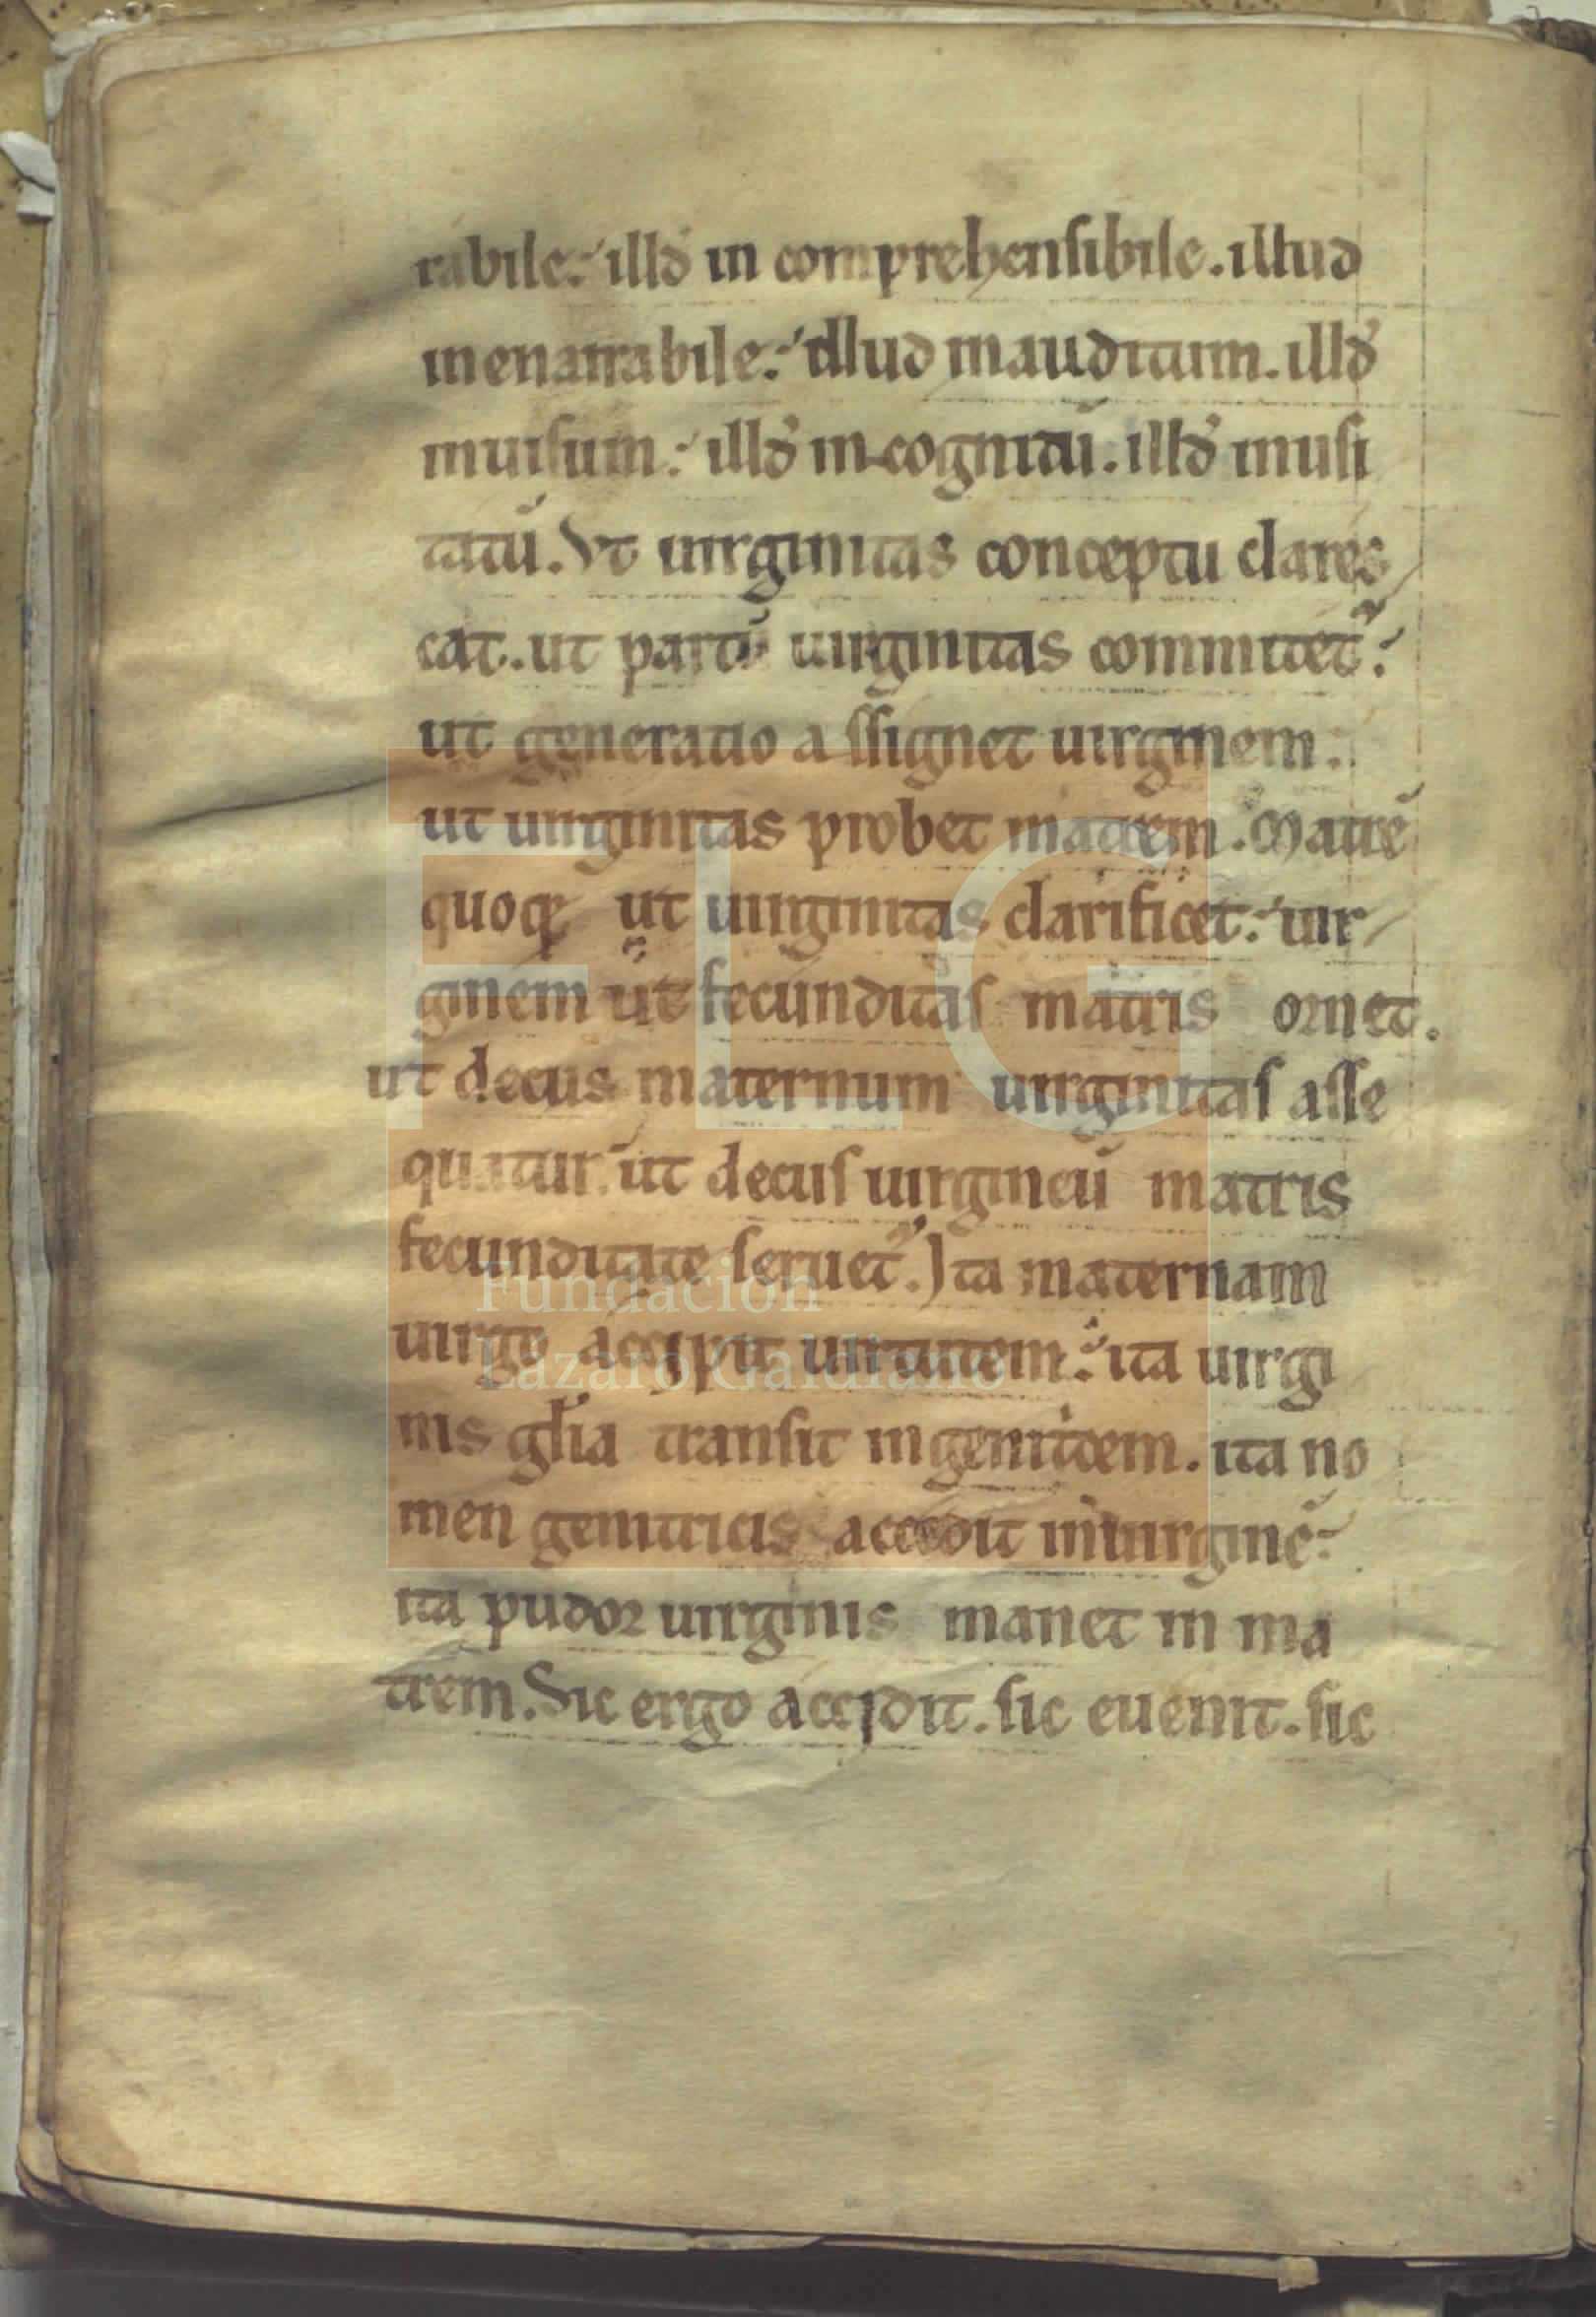 rabile. illđ in comprehensibile. illud
inenarrabile. illud inauditum. illđ
inuisum. illđ in-cognitū. illđ inusi
tatū. Vt uirginitas conceptu clares
cat. ut partu uirginitas comitet᷑.
ut generatio assignet uirginem.
ut uirginitas probet matrem. Matrē
quoqꝫ ut uirginitas clarificet. uir
ginem ut fecunditas matris ornet.
ut decus maternum uirginitas asse
quatur. ut decus uirgineū matris
fecunditate seruet᷑. Ita maternam
uirgo accipit uirtutem. ita uirgi
nis gl̄ia transit in genitcem. ita no
men genitricis accedit in uirginē.
ita pudor uirginis manet in ma
trem. Sic ergo accidit. sic euenit. sic
FLG
Fundación
Lázaro Galdiano